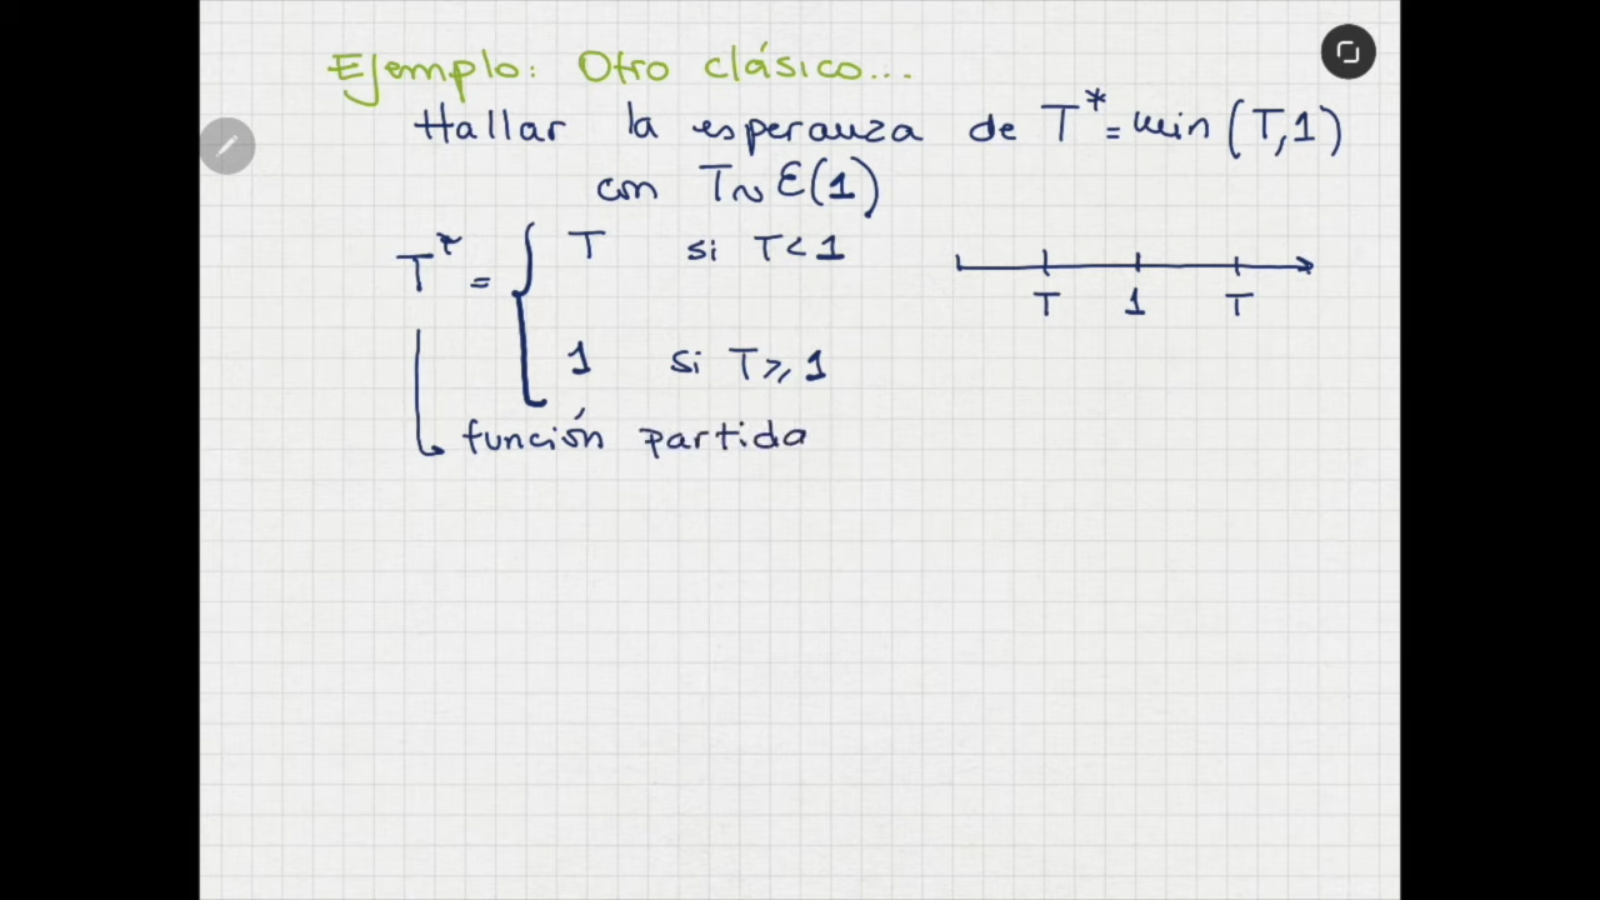 Ejemplo: Otro clásico...
Hallar la esperanza de T* = min (T,1)
con T ~ ε(1)
T* = { T si T < 1
1 si T ⩾ 1
T 1 T
función partida